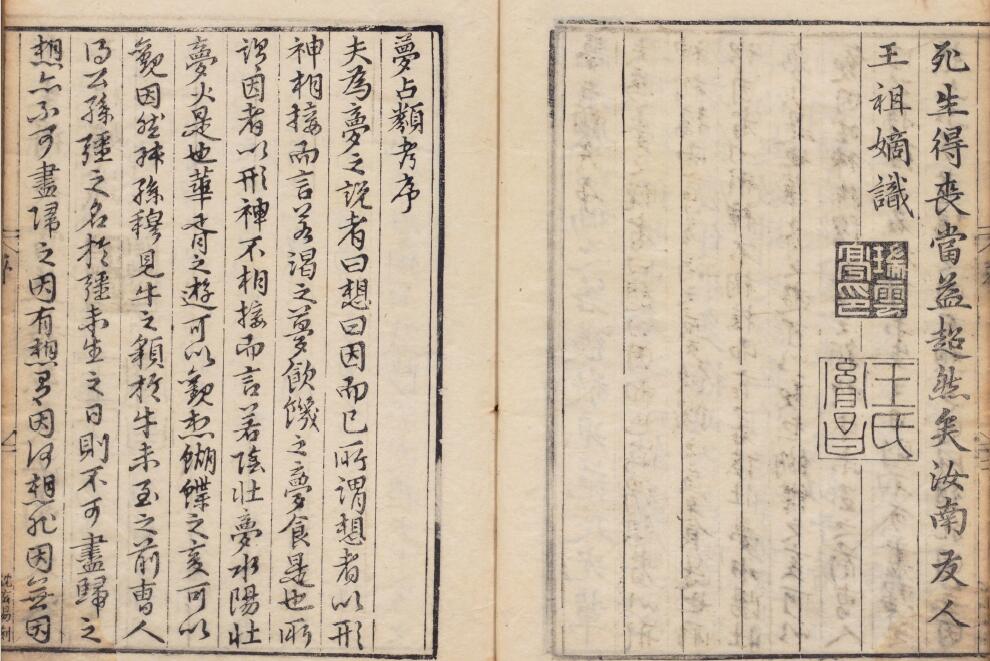 死生得喪當益超然矣汝南友人
王祖嫡識
王氏胤昌
夢占類考序
夫為夢之說者曰想曰因而已所謂想者以形
神相接而言若渴之夢飲饑之夢食是也所
謂因者以形神不相接而言若陰壯夢水陽壯
夢火是也華胥之遊可以觀想蝴蝶之變可以
觀因然叔孫穆見牛之䫉於牛未至之前曹人
得公孫疆之名於疆未生之日則不可盡歸之
想亦不可盡歸之因有想有因何想非因無因